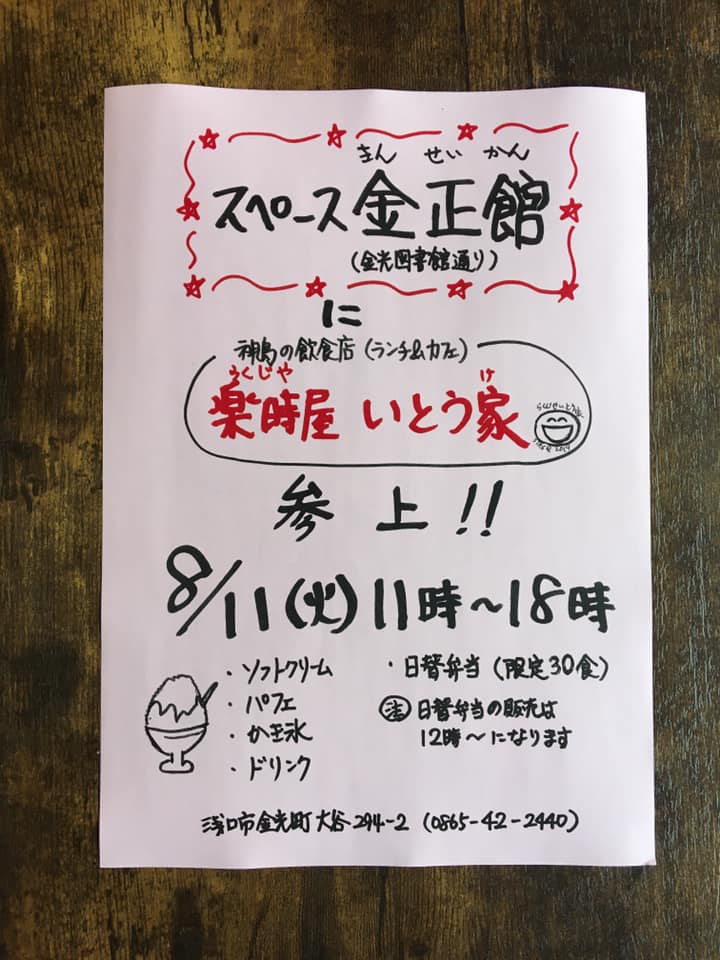 きん せい かん
スペース金正館
(金光図書館通り)
に
神島の飲食店(ランチ&カフェ)
らくじや け
楽時屋 いとう家
参上!!
8/11(火)11時~18時
・ソフトクリーム
・パフェ
・かき氷
・ドリンク
・日替弁当(限定30食)
注 日替弁当の販売は
12時~になります
浅口市金光町大谷294-2 (0865-42-2440)